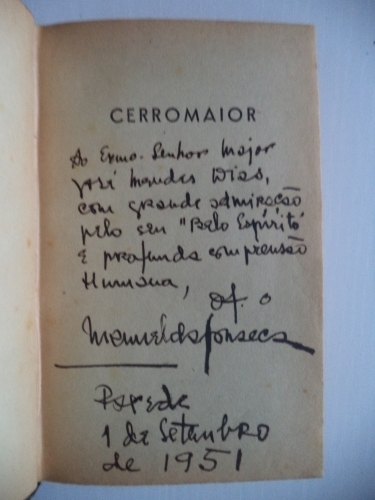 CERROMAIOR
Ao Exmo. Senhor Major
José Mendes Dias,
com grande admiração
pelo seu "Belo Espírito"
e profunda comprensão
Humana,
of. o
Manuel da Fonseca
Parede
1 de Setembro
de 1951